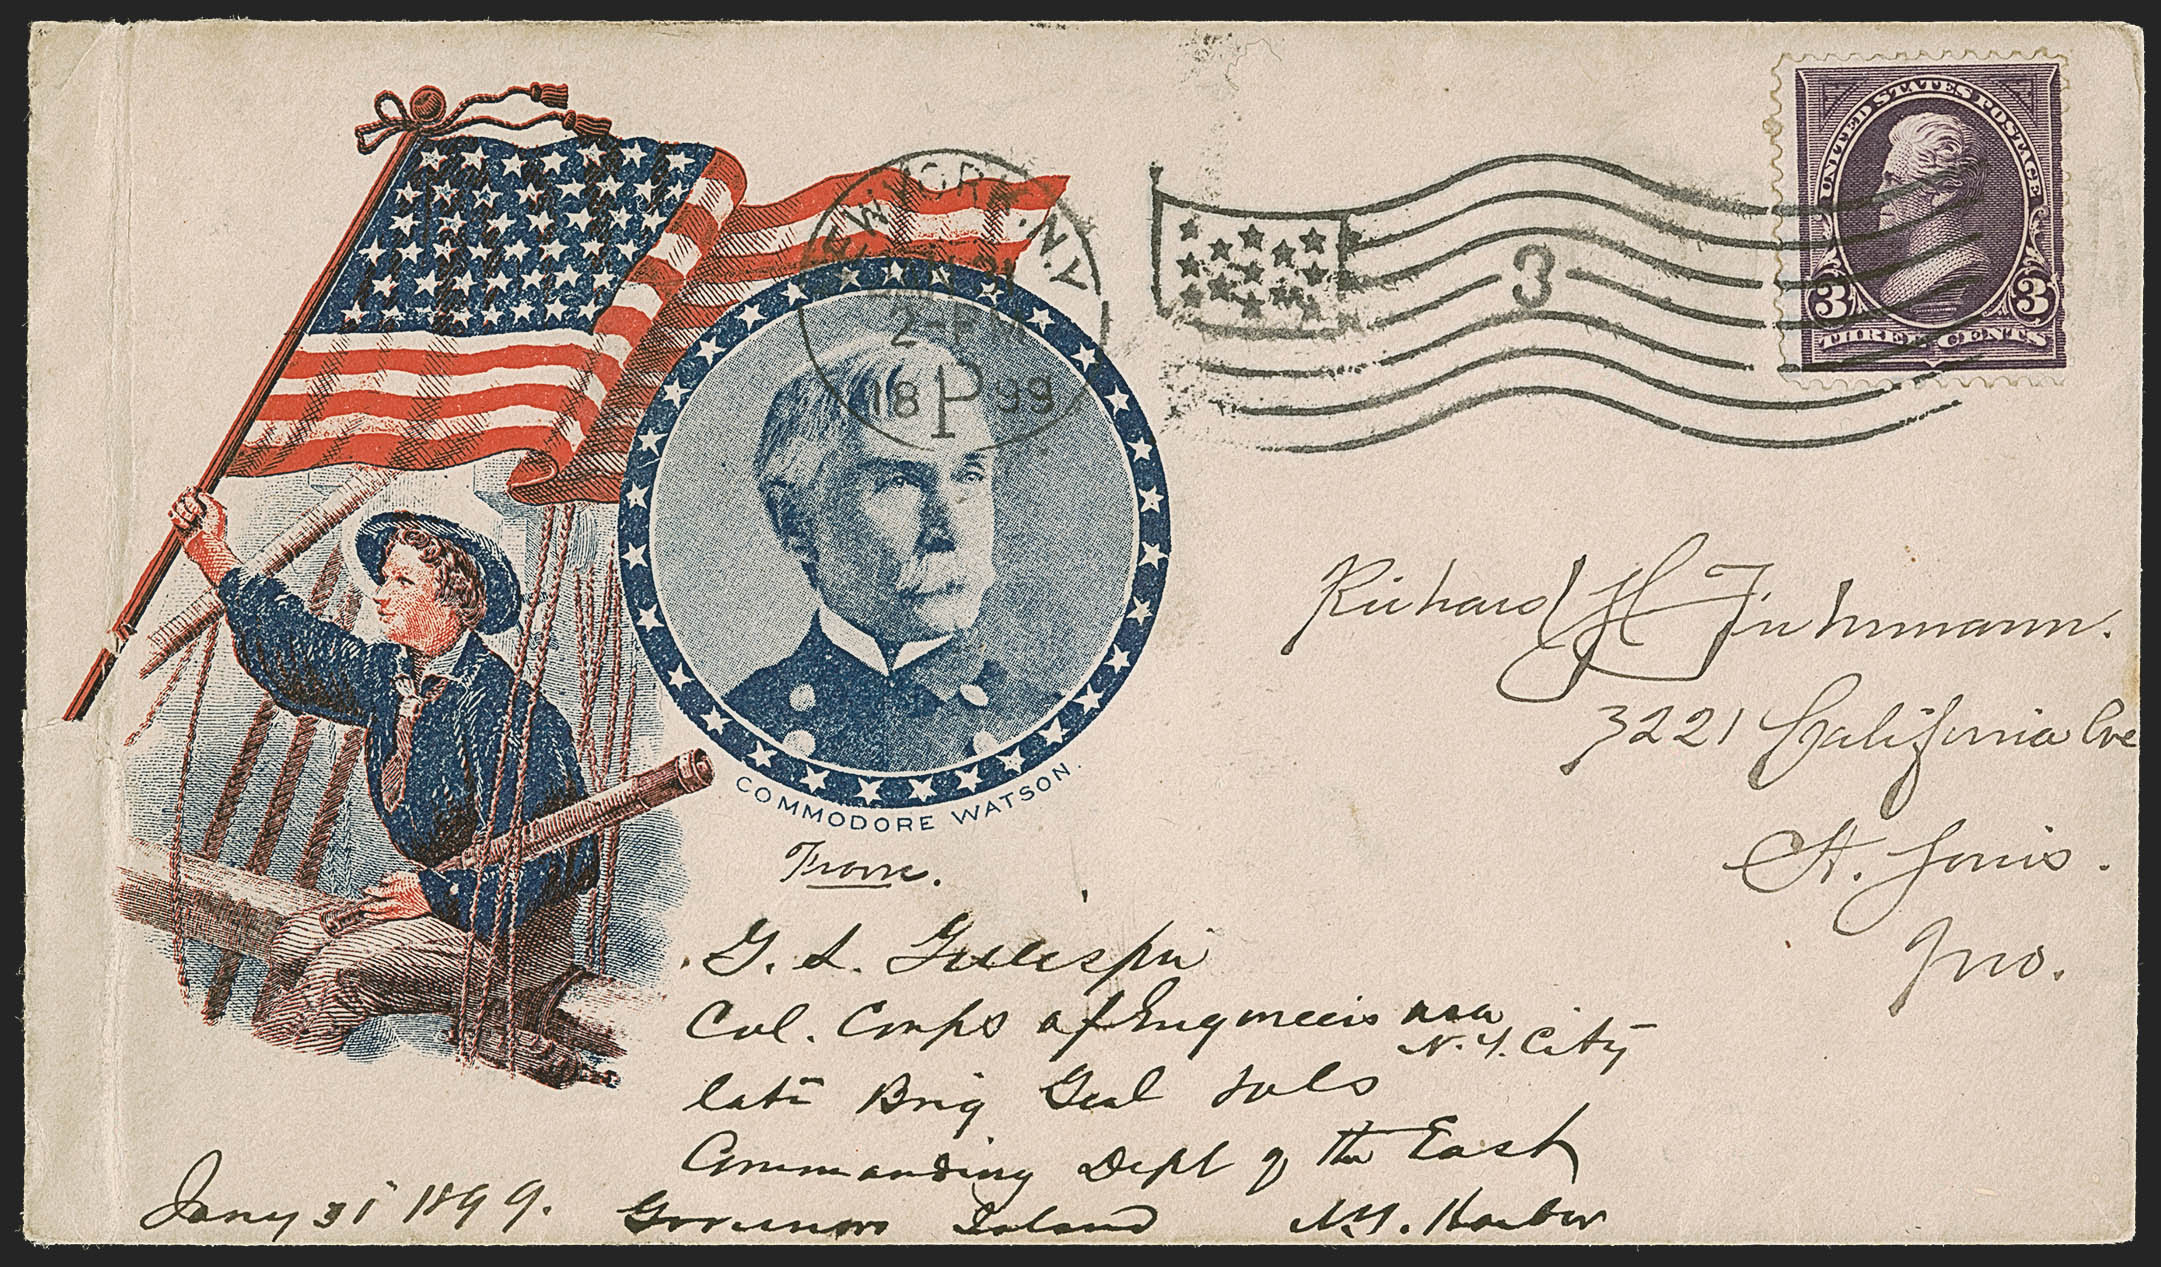 UNITED STATES POSTAGE
3 3
THREE CENTS
NEW YORK, N.Y.
31
2-PM
18 P 99
3
COMMODORE WATSON.
Richard H Fuhrmann.
3221 California Ave
St. Louis.
Mo.
From.
G. L. Gillespie
Col. Corps of Engineers USA
N.Y. City
late Brig Genl Vols
Commanding Dept of the East
Governors Island N.Y. Harbor
Jany 31 1899.